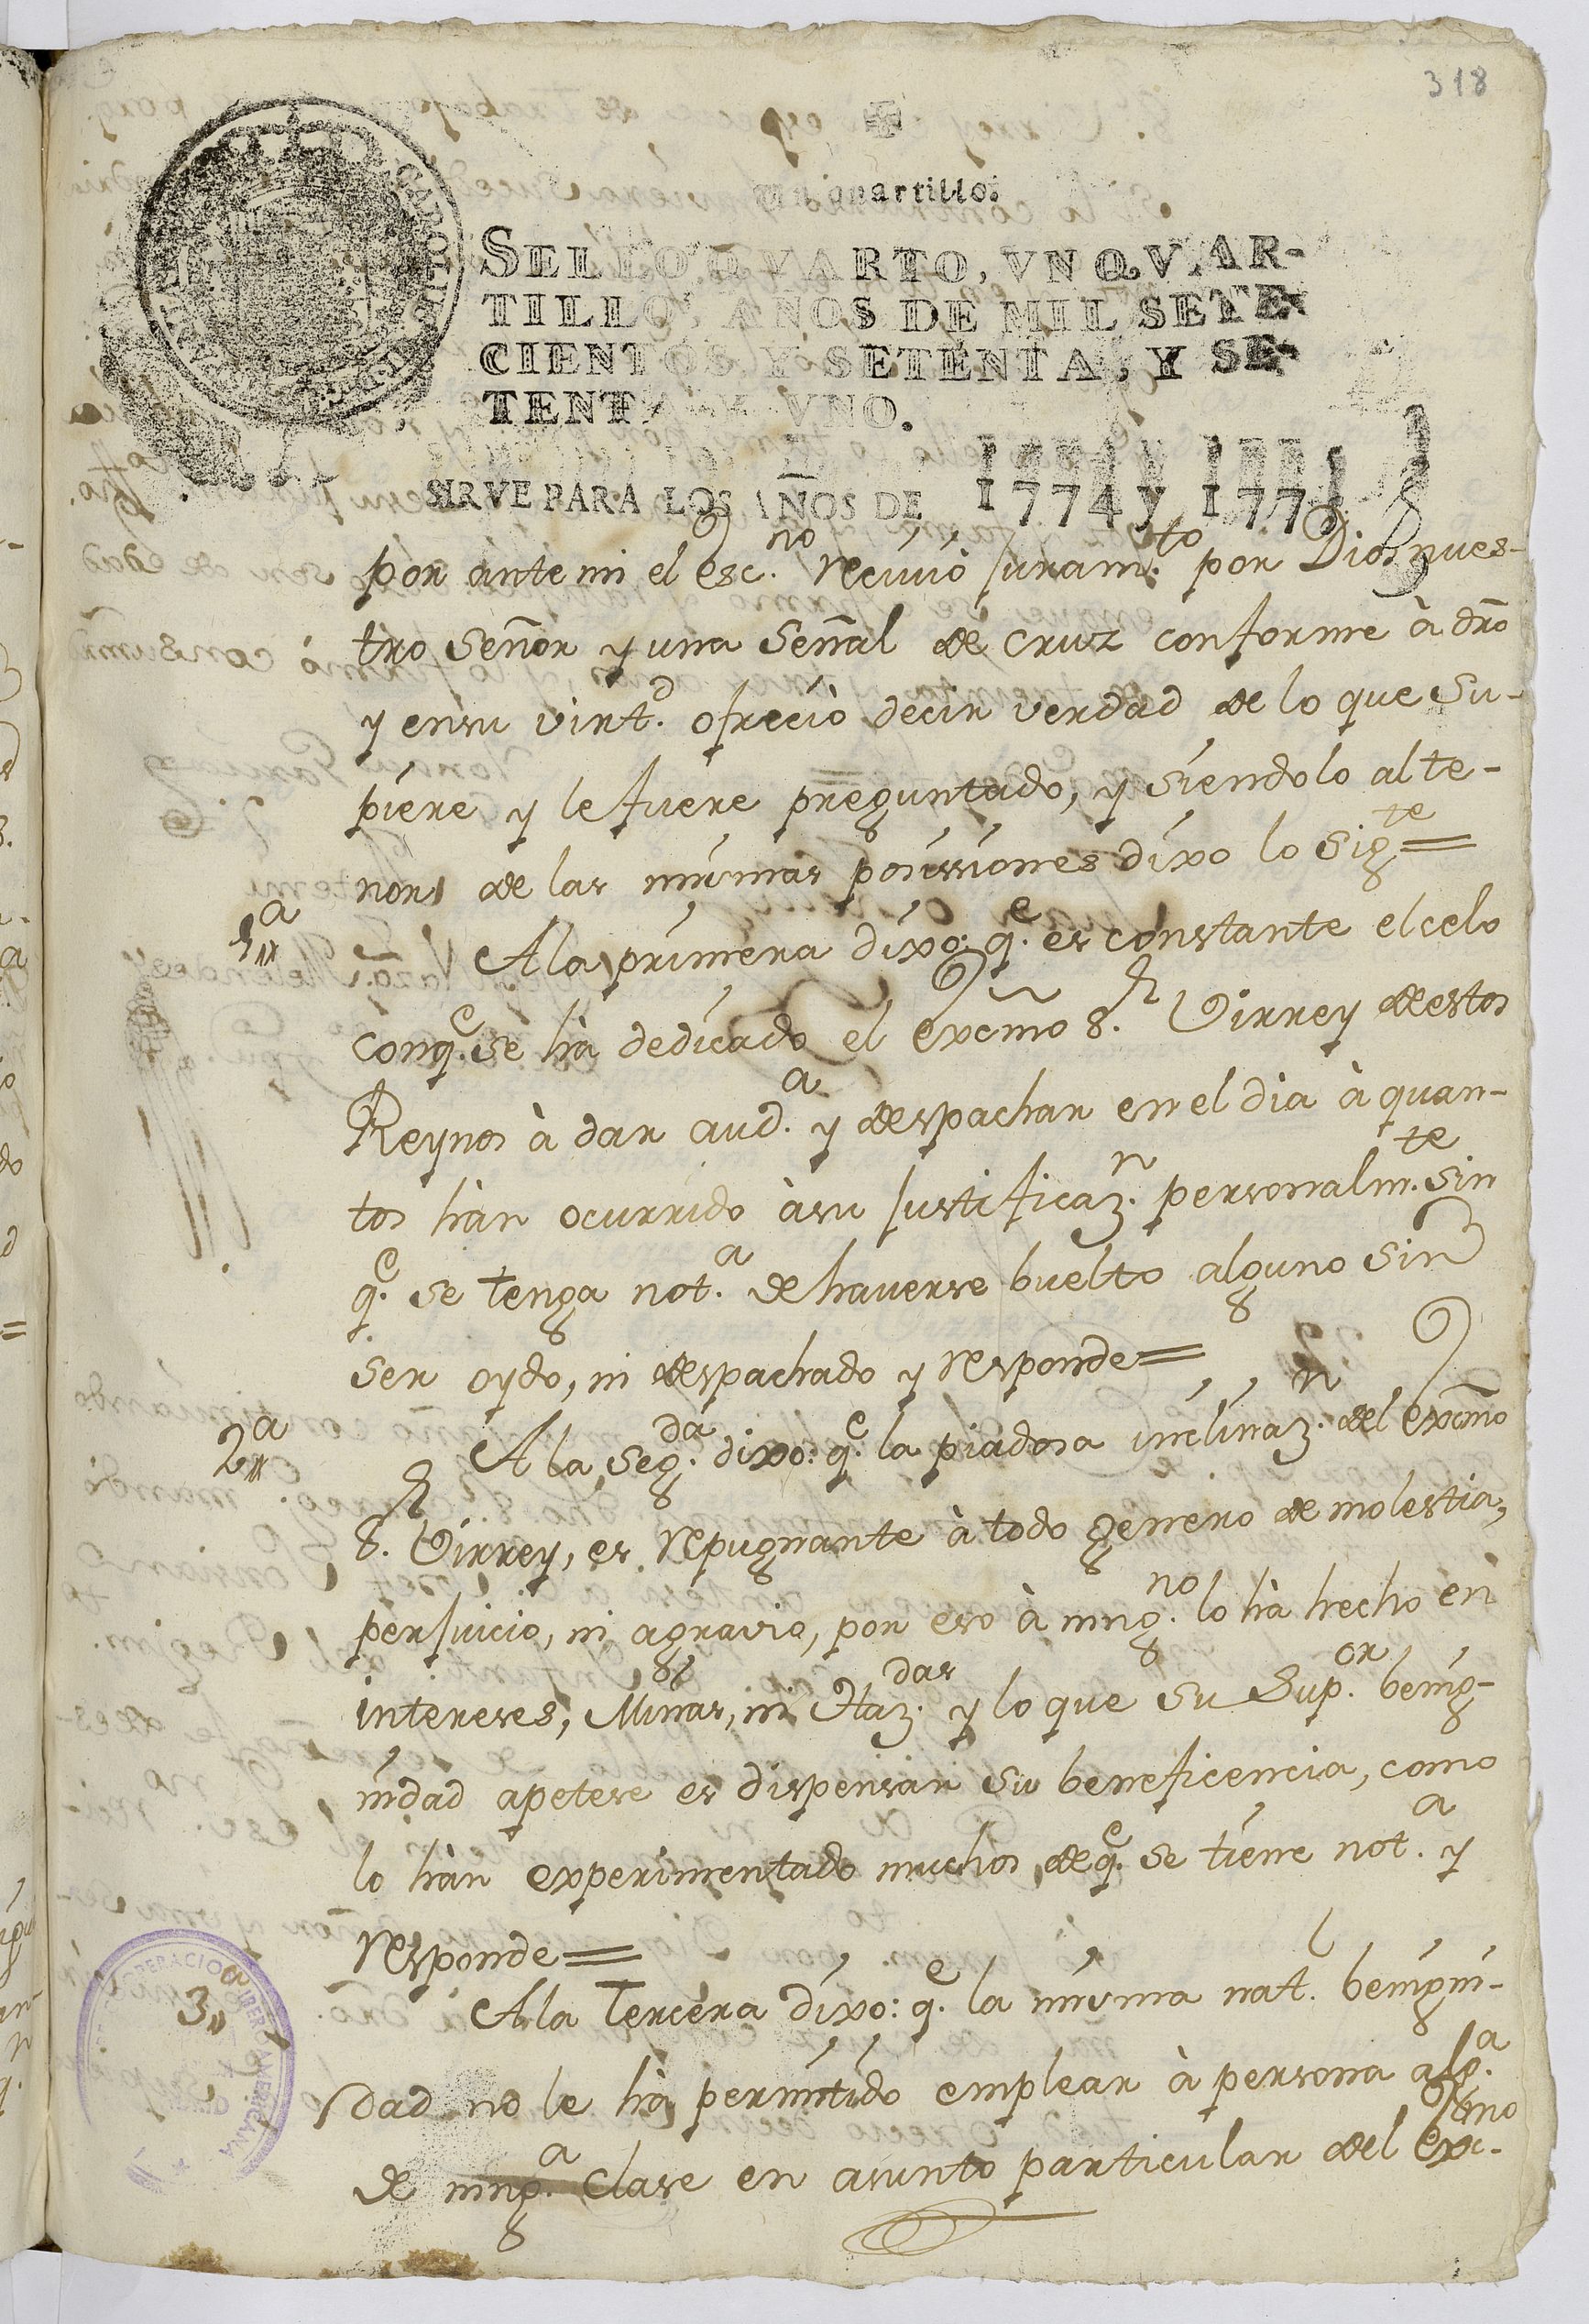 318
Un quartillo.
SELLO QVARTO, VN QVAR-
TILLO, AÑOS DE MIL SETE-
CIENTOS Y SETENTA, Y SE-
TENTA Y VNO.
SIRVE PARA LOS AÑOS DE 1774 y 1775
por ante mi el esc.no recivió juram.to por Dios nues-
tro Señor y una Señal de Cruz conforme à dr̃o
y en su virt.d ofreciò decir verdad de lo que su-
piere y le fuere preguntado, y siendolo al te-
nor de las mismas posissiones dixo lo sig.te =
1.a A la primera dixo: q.e es constante el celo
con q.e se hà dedicado el excm̃o S.r Virrey de estos
Reynos à dar aud.a y despachar en el dia à quan-
tos hàn ocurrido à su justificaz.n personalm.te sin
q.e se tenga not.a de haverse buelto alguno sin
ser oydo, ni despachado y responde =
2.a A la seg.da dixo: q.e la piadosa inclinaz.n del excm̃o
S.r Virrey, es repugnante à todo genero de molestia,
perjuicio, ni agravio, por eso à ning.no lo hà hecho en
intereses, Minas, ni Haz.das y lo que su Sup.or benig-
nidad apetese es dispensar su beneficencia, como
lo hàn experimentado muchos de q.e se tiene not.a y
responde =
3.a A la Tercera dixo: q.e la misma nat.l benigni-
dad no le hà permitido emplear à persona alg.a
de ning.a clase en asunto particular del Exc.mo